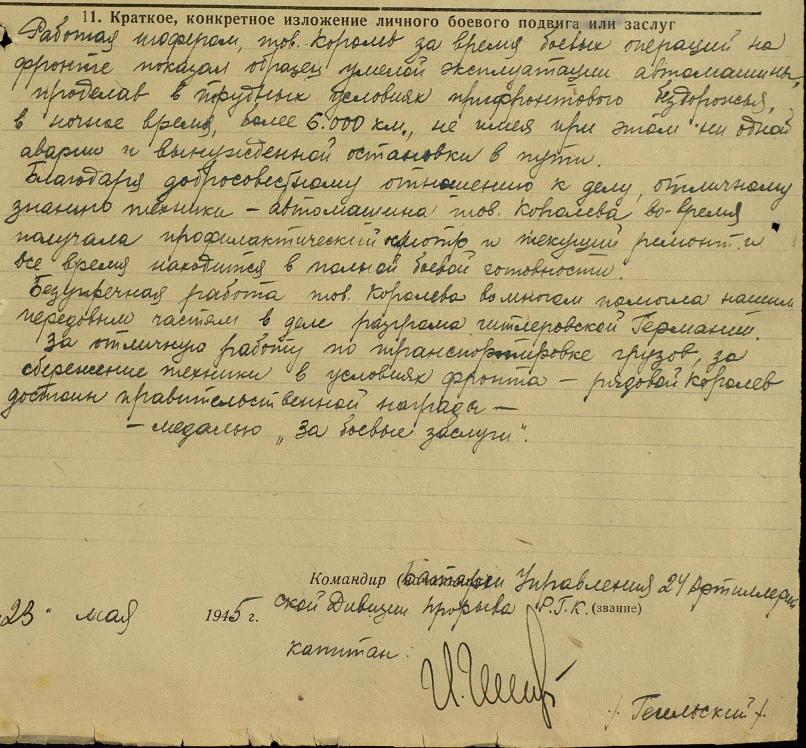 11. Краткое, конкретное изложение личного боевого подвига или заслуг
Работая шофером, тов. Королев за время боевых операций на
фронте показал образец умелой эксплуатации автомашины,
проделав в трудных условиях прифронтового бездорожья,
в ночное время, более 6.000 км., не имея при этом ни одной
аварии и вынужденной остановки в пути.
Благодаря добросовестному отношению к делу, отличному
знанию техники – автомашина тов. Королева во-время
получала профилактический осмотр и текущий ремонт и
все время находится в полной боевой готовности.
Безупречная работа тов. Королева во многом помогла нашим
передовым частям в деле разгрома гитлеровской Германии.
За отличную работу по транспортировке грузов, за
сбережение техники в условиях фронта – рядовой Королев
достоин правительственной награды –
– медалью „За боевые заслуги".
Командир Батареи Управления 24 Артиллерий
23 " мая 1945 г. ской Дивизии прорыва Р.Г.К. (звание)
капитан: